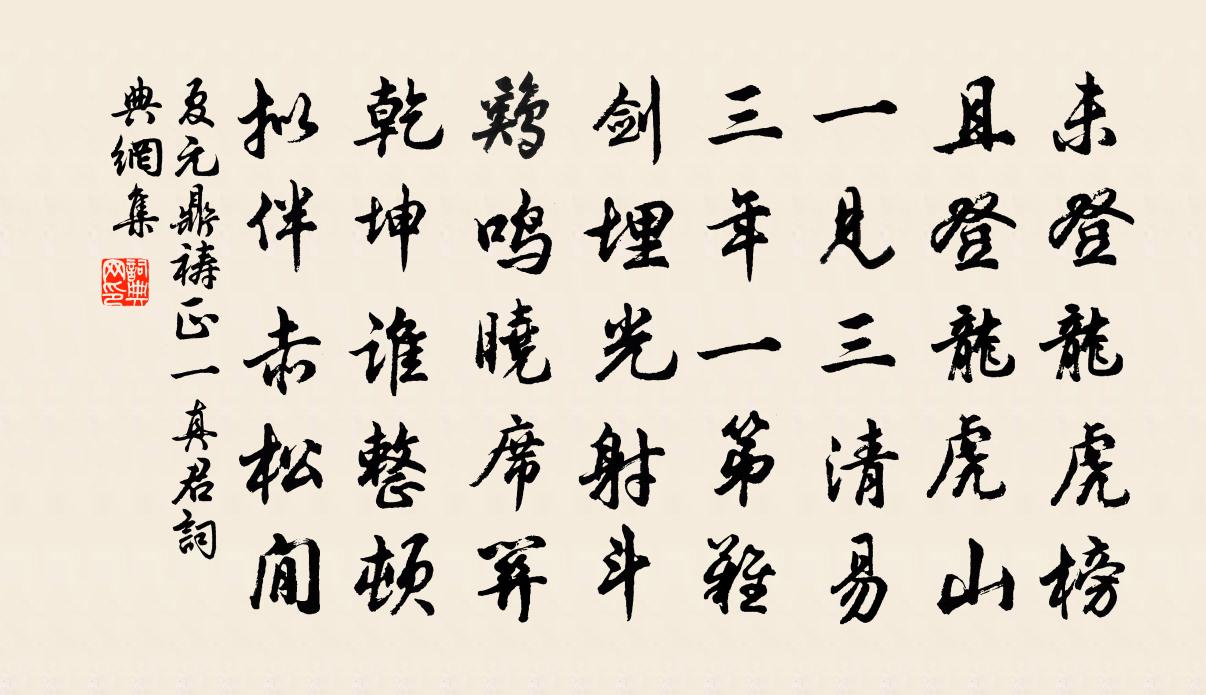 未登龍虎榜
且登龍虎山
一見三清易
三年一第難
剑埋光射斗
鷄鸣曉度關
乾坤誰整頓
拟伴赤松閒
夏元鼎禱正一真君詞
典網集
詞典
网印